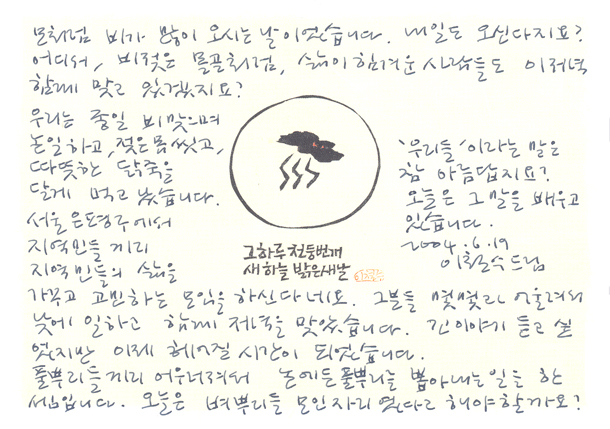 모처럼 비가 많이 오시는 날이었습니다. 내일도 오신다지요?
어디서, 비젖은 몰골처럼, 삶이 힘겨운 사람들도 이 저녁
함께 맞고 있겠지요?
우리는 종일 비맞으며
논일하고, 젖은 몸 씻고,
따뜻한 닭죽을
달게 먹고 났습니다.
서울 은평구에서
지역민들끼리
지역민들의 삶을
가꾸고 고민하는 모임을 하신다네요. 그분들 몇몇과 어울려서
낮에 일하고 함께 저녁을 맞았습니다. 긴 이야기 듣고 싶
었지만 이제 헤어질 시간이 되었습니다.
풀뿌리들끼리 어우러져서 논에 든 풀뿌리를 뽑아내는 일을 한
셈입니다. 오늘은 벼뿌리들 모인 자리였다고 해야 할까요?
'우리들'이라는 말은
참 아름답지요?
오늘은 그 말을 배우고
있습니다.
2004.6.19
이철수 드림
그 하루 천둥번개
새 하늘 밝은 새날